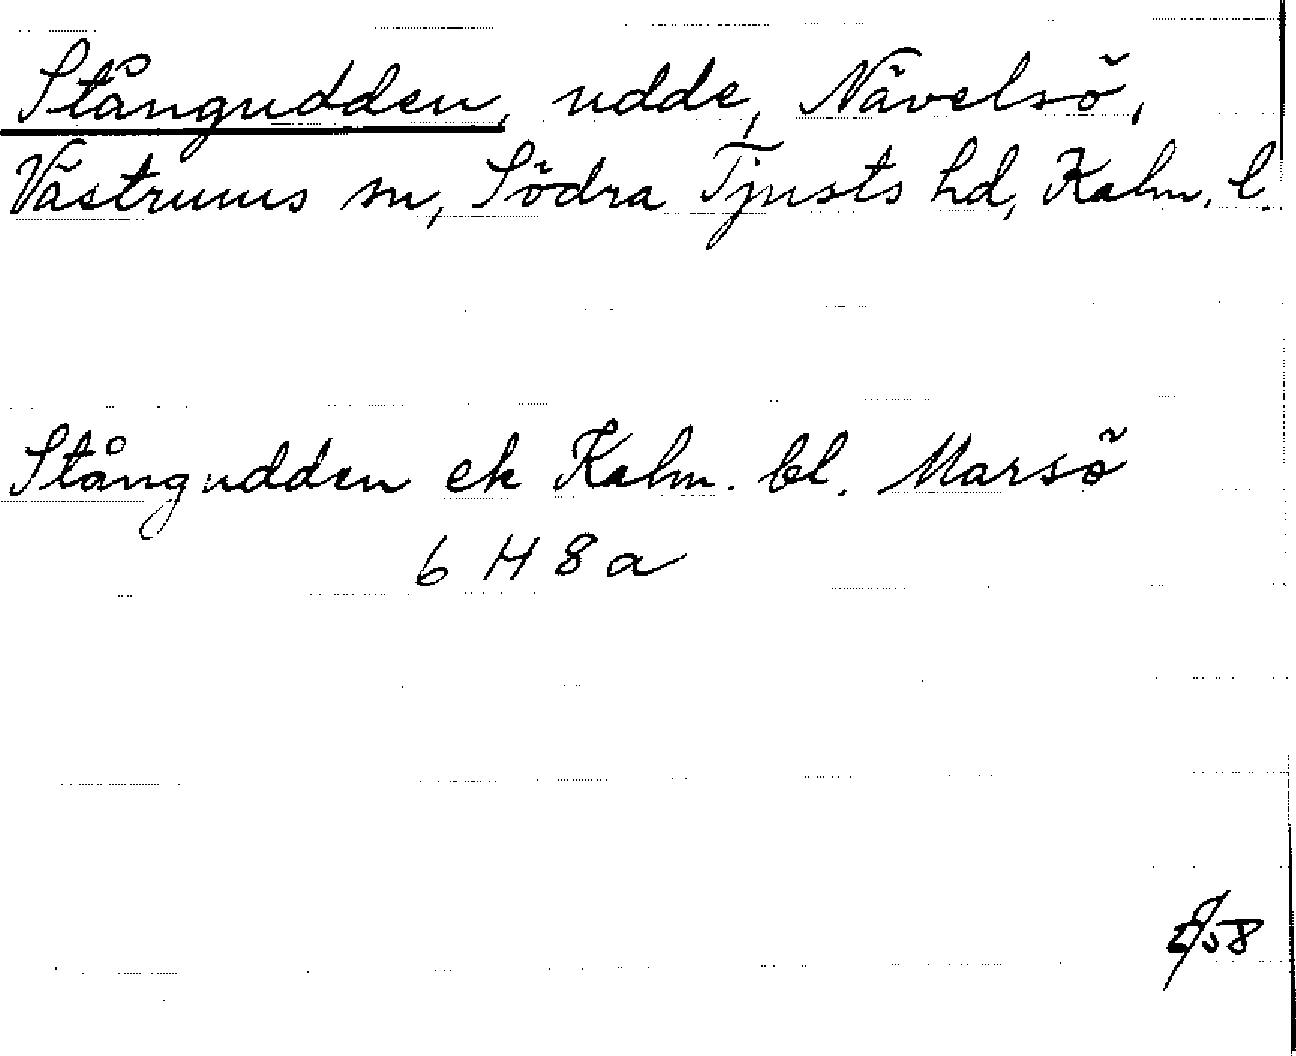 Stångudden, udde, Nävelsö,
Västrums sn, Södra Tjusts hd, Kalm. l.
Stångudden ek Kalm. bl. Marsö
6 H 8 a
58